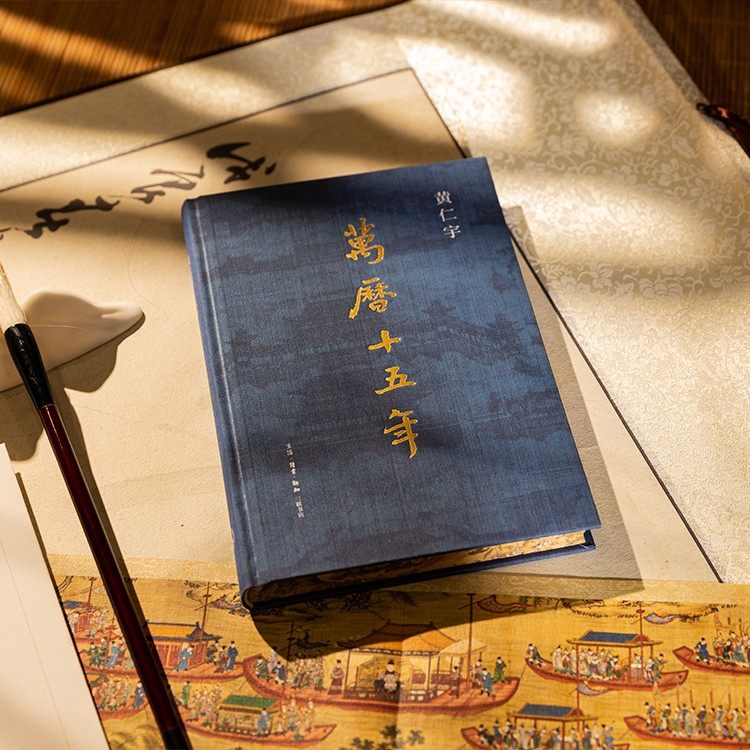 黄仁宇
萬曆十五年
生活·讀書·新知 三联书店